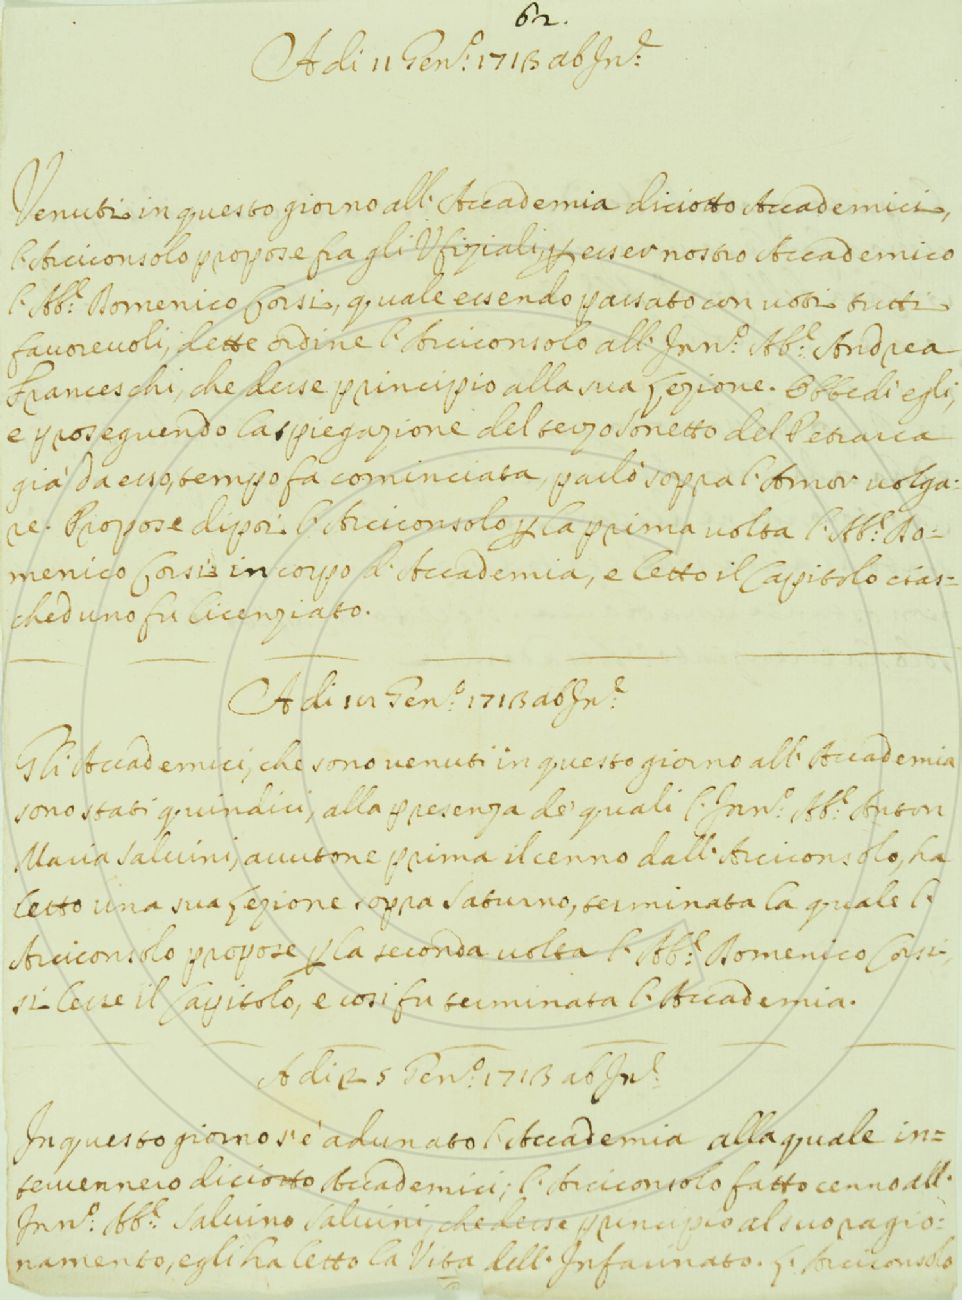 62.
A di 11 Gen.º 1713 ab In.e
Venuti in questo giorno all'Accademia diciotto Accademici,
l'Arciconsolo propose fra gli Ufiziali p esser nostro Accademico
l'Ab.e Domenico Corsi, quale essendo passato con voti tutti
favorevoli, dette ordine l'Arciconsolo all'Inn.º Ab.e Andrea
Franceschi, che desse principio alla sua Lezione. Obbedì egli,
e proseguendo la spiegazione del terzo Sonetto del Petrarca
già da esso, tempo fa cominciata, parlò sopra l'Amor volga-
re. Propose dipoi l'Arciconsolo p la prima volta l'Ab.e Do=
menico Corsi in corpo d'Accademia, e letto il Capitolo cias=
cheduno fu licenziato.
A di Gen.º 1713 ab In.e
Gli Accademici, che sono venuti in questo giorno all'Accademia
sono stati quindici, alla presenza de' quali l'Inn.º Ab.e Anton
Maria Salvini, avutone prima il cenno dall'Arciconsolo, ha
letto una sua Lezione sopra Saturno, terminata la quale l'
Arciconsolo propose p la seconda volta l'Ab.e Domenico Corsi,
si lesse il Capitolo, e così fu terminata l'Accademia.
A di 25 Gen.º 1713 ab In.e
In questo giorno s'è adunato l'Accademia alla quale in=
tervennero diciotto Accademici; l'Arciconsolo fatto cenno all'
Inn.º Ab.e Salvino Salvini, che desse principio al suo ragio=
namento, egli ha letto la Vita dell'Infarinato. L'Arciconsolo